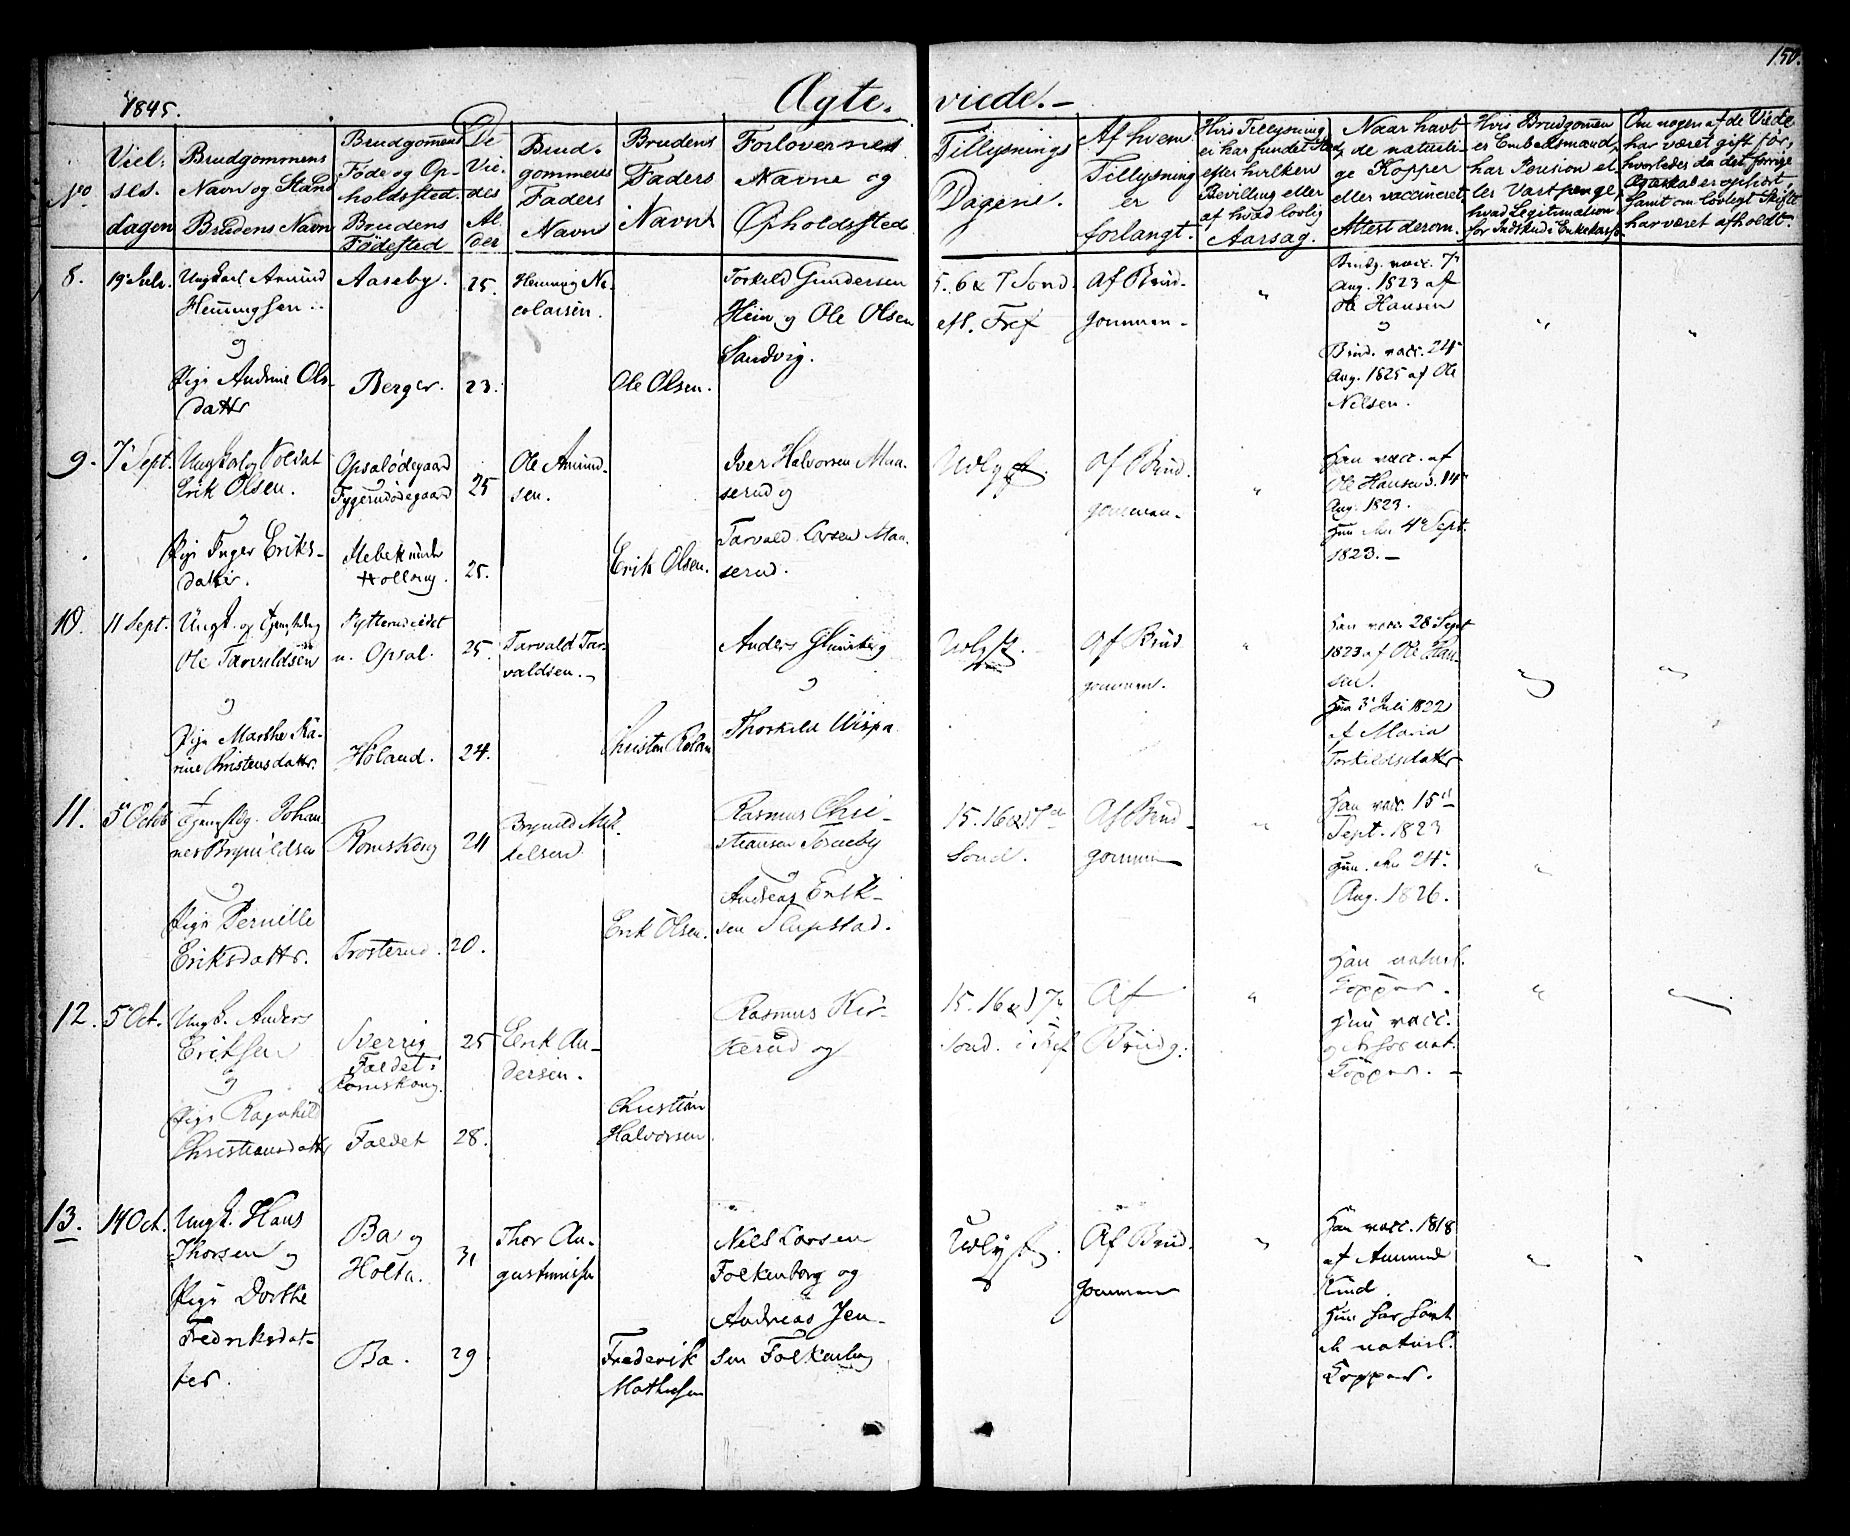 150.
1845.
Ægte. viede.
No
Viel-
ses.
dagen
Brudgommens
Navn og Stand
Brudens Navn
Brudgomens
Føde og Op-
holdssted.
Brudens
Fødested
De
Vie-
des
Al
der
Brud-
gommens
Faders
Navn
Brudens
Faders
Navn
Forlovernes
Navne og
Opholdssted
Tillysnings
Dagene.
Af hvem
Tillysning
er
forlangt.
Hvis Tillysning
ei har fundet Sted,
efter hvilken
Bevilling eller
af hvad lovlig
Aarsag.
Naar havt
de naturli-
ge Kopper
eller vaccineret
Attest derom.
Hvis Brudgomen
er Embedsmand,
har Pension el-
ler Vartpenge,
hvad Legitimation
for Indskud i Enkekasse
Om nogen af de Viede
har været gift før,
hvorledes da det forrige
Ægteskab er ophört,
samt om lovligt Skifte
har været afholdt.
8.
19 Julr.
Ungkarl Amund
Hemmingsen
og
Pige Andrine Ols-
datter
Aaseby.
Berger.
25.
23.
Hemming Ni-
colaisen.
Ole Olsen.
Torkild Gundersen
Hein og Ole Olsen
Sandvig.
5. 6 & 7 Sond.
eft. Tref
Af Brud-
gommen
"
Brudg. vacc. 7
Aug. 1823 af
Ole Hansen
og
Brud. vacc. 24
Aug. 1825 af Ole
Nilsen.
"
"
9.
7 Sept.
Ungkarl og Soldat
Erik Olsen.
og
Pige Inger Eriks-
datter.
Opsalødegaard
Tyggerudødegaard
25
25.
Ole Amund-
sen.
Erik Olsen.
Iver Halvorsen Maa-
serud og
Tarvald Larsen Maa-
serud.
Udlyst.
Af Brud-
gommen
"
Han vacc. af
Ole Hansen d. 14
Aug. 1823.
Hun den 4 Sept.
1823.
10.
11 Sept.
Ole Tarvaldsen
og
Pige Marthe Ka-
rine Kristensdatter.
n. Opsal.
Høland.
25.
24.
Tarvald Tar-
valdsen.
Anders
og
Thorkild
Udlyst.
Af Brud
gommen.
"
Han vacc. 28 Sept
1823 af Ole Han-
sen.
Hun 3 Juli 1822
af Maria
Torkildsdatter
"
"
11.
5 Octb
Johan-
nes Brynildsen
og
Pige Pernille
Eriksdattr.
Romskoug
Trosterud.
24
20.
Brynild Mik-
kelsen
Erik Olsen.
Rasmus Chri-
stiansen Toraeby
og
Andreas Erik-
sen Slupstad.
15. 16 & 17de
Sond.
Af Brud-
gommen
"
Han vacc. 15
Sept. 1823
Hun den 24
Aug. 1826.
"
12.
5 Oct.
Ungk. Anders
Eriksen
og
Pige Ragnhild
Christiansdattr
Sverrig
Foldet i
Romskoug.
Foldet
25
28.
Erik An-
dersen.
Christian
Halvorsen
Rasmus Kir-
kerud og
15. 16 & 17
Sond. i Tref
Af
Brudg.
"
Han naturl.
Kopper.
Hun vacc.
og nat.
Kopper.
"
"
13.
14 Oct.
Ungk. Hans
Thorsen og
Pige Dorthe
Fredriksdat-
ter.
Ba og
Holta.
Ba.
31
29
Thor Au-
gustinusen
Frederik
Mathisen
Niels Larsen
Folkenborg og
Andreas Jen-
sen Folkenborg
Udlyst.
Af Brud-
gommen
"
Han vacc. 1818
af Amund
Kind
Hun har havt
de naturl.
Kopper.
"
"